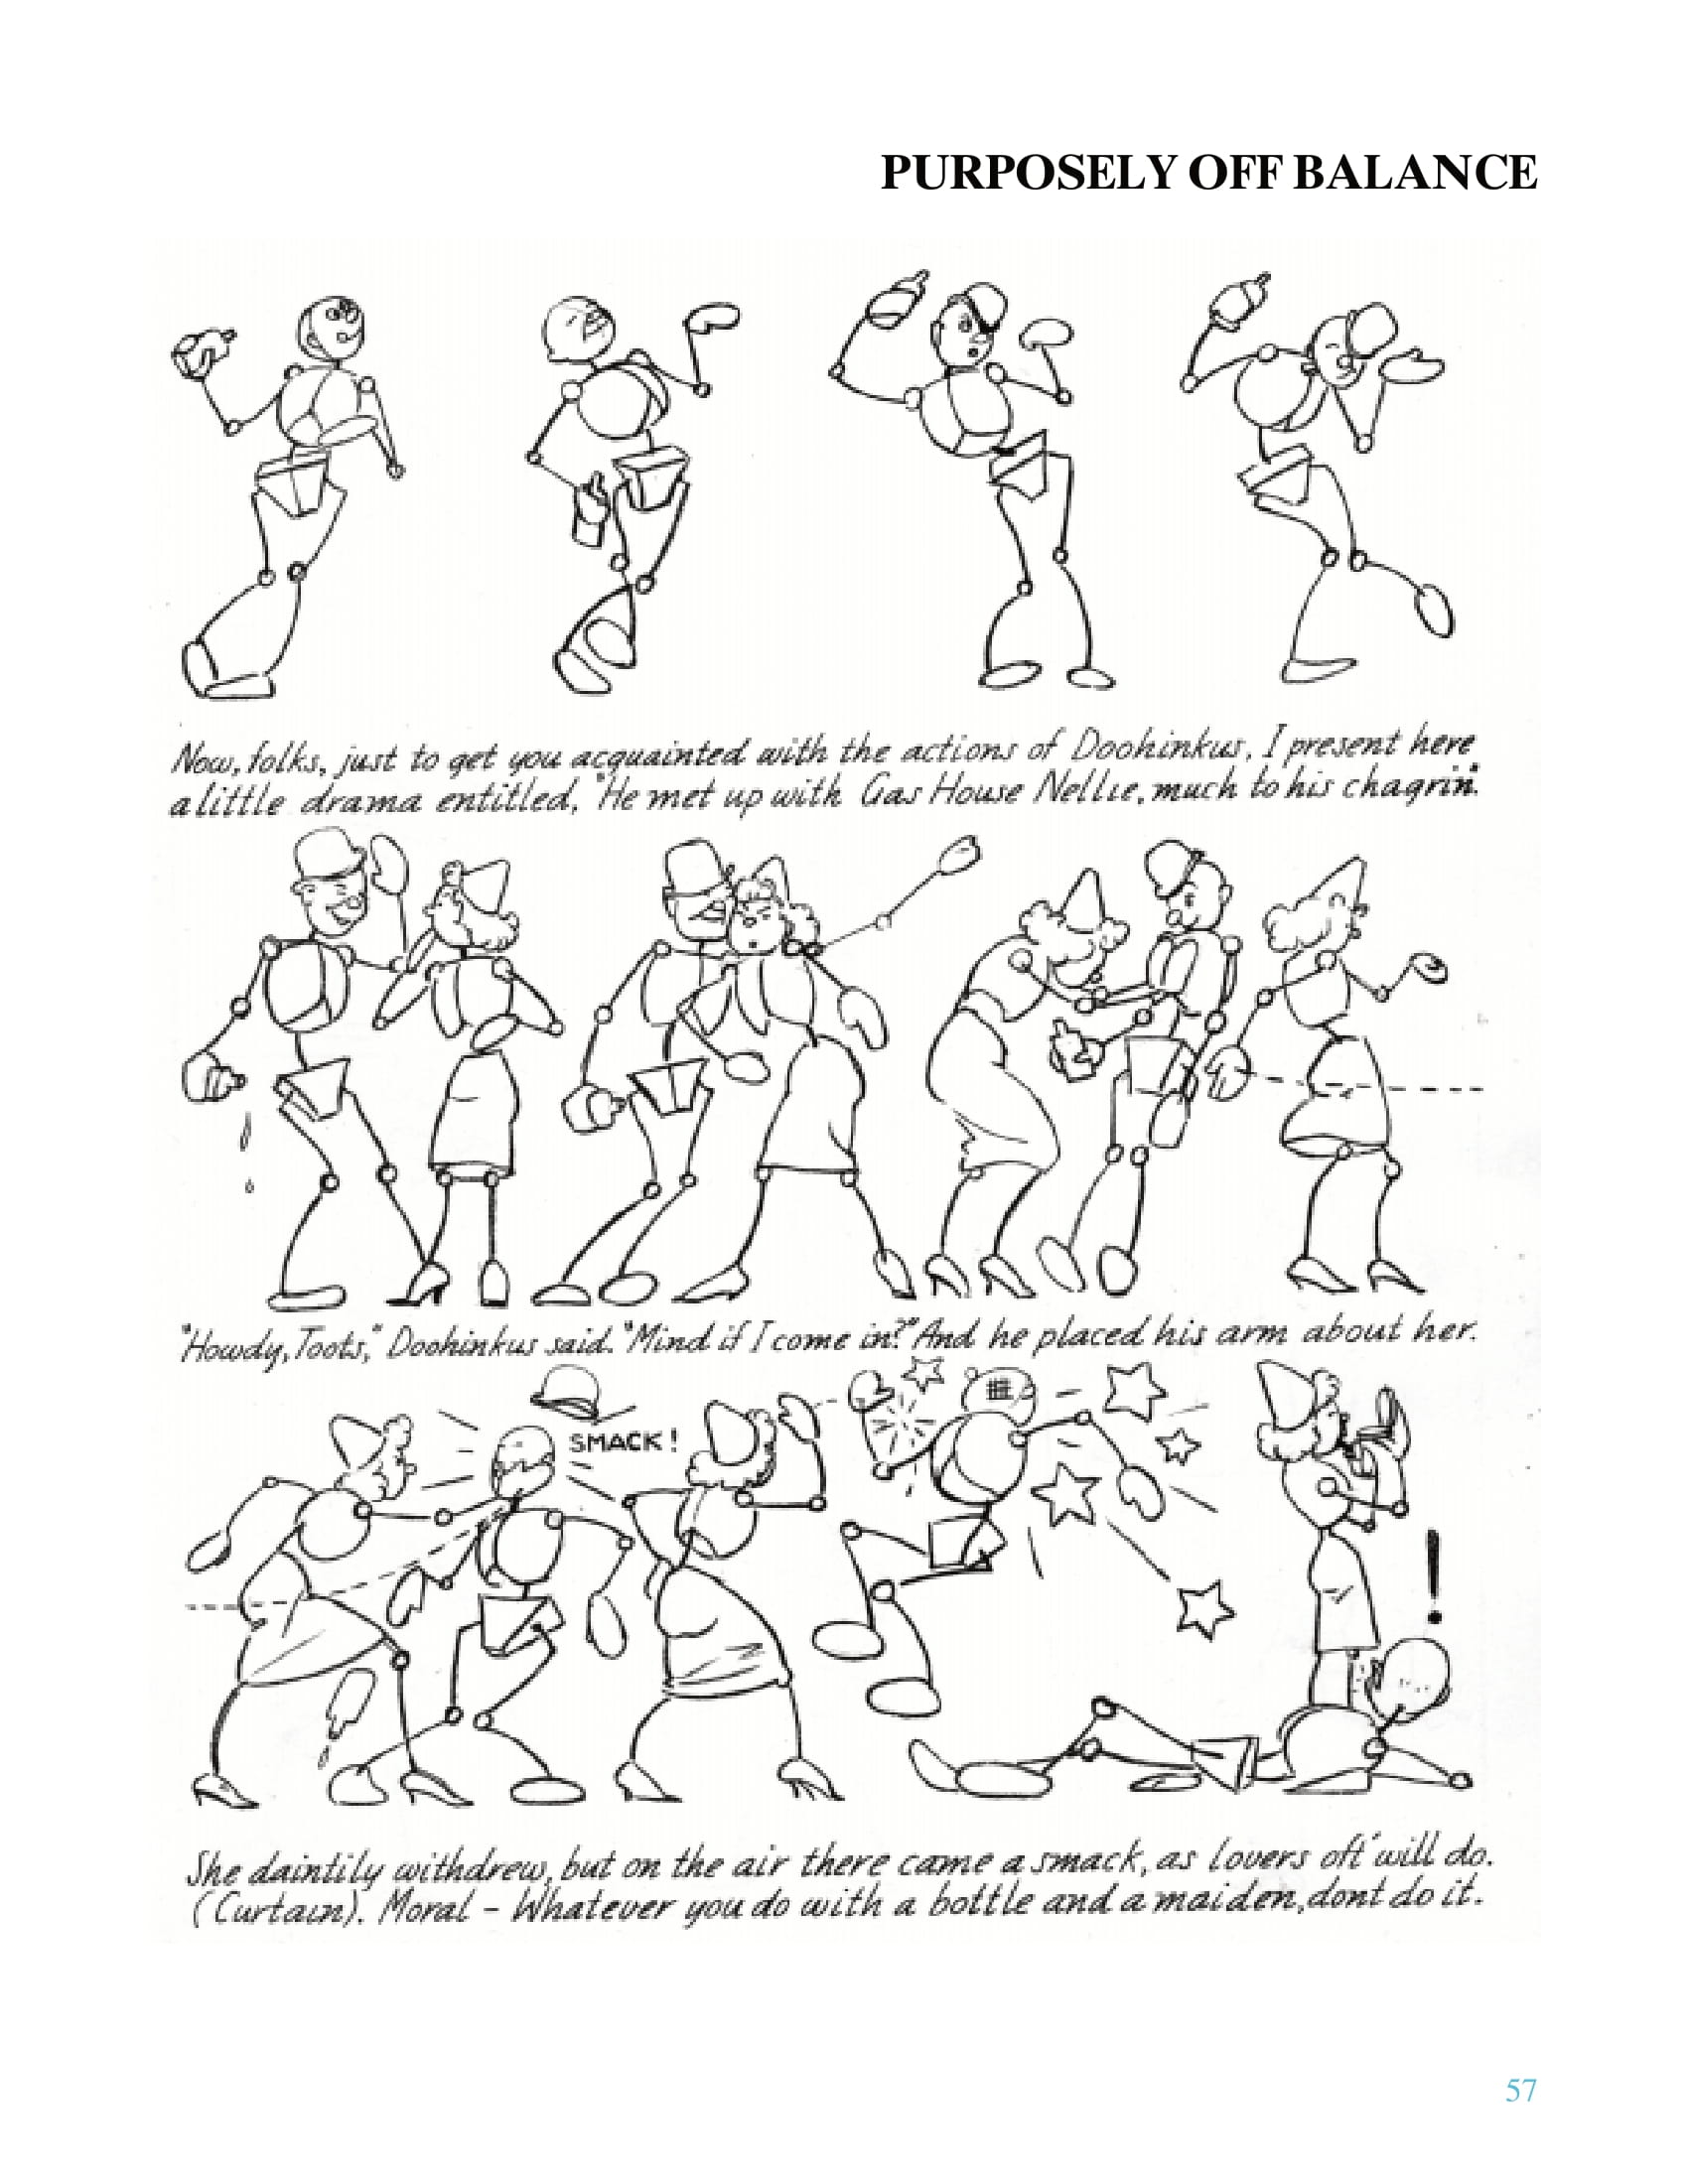 PURPOSELY OFF BALANCE
Now, folks, just to get you acquainted with the actions of Doohinkus, I present here
a little drama entitled, "He met up with Gas House Nellie, much to his chagrin".
"Howdy, Toots," Doohinkus said. "Mind if I come in?" And he placed his arm about her.
SMACK!
!
She daintily withdrew, but on the air there came a smack, as lovers oft' will do.
(Curtain). Moral - Whatever you do with a bottle and a maiden, dont do it.
57